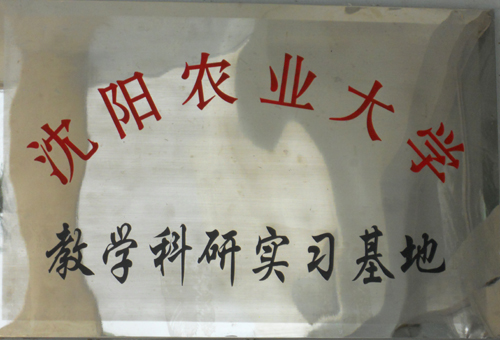 沈阳农业大学
教学科研实习基地